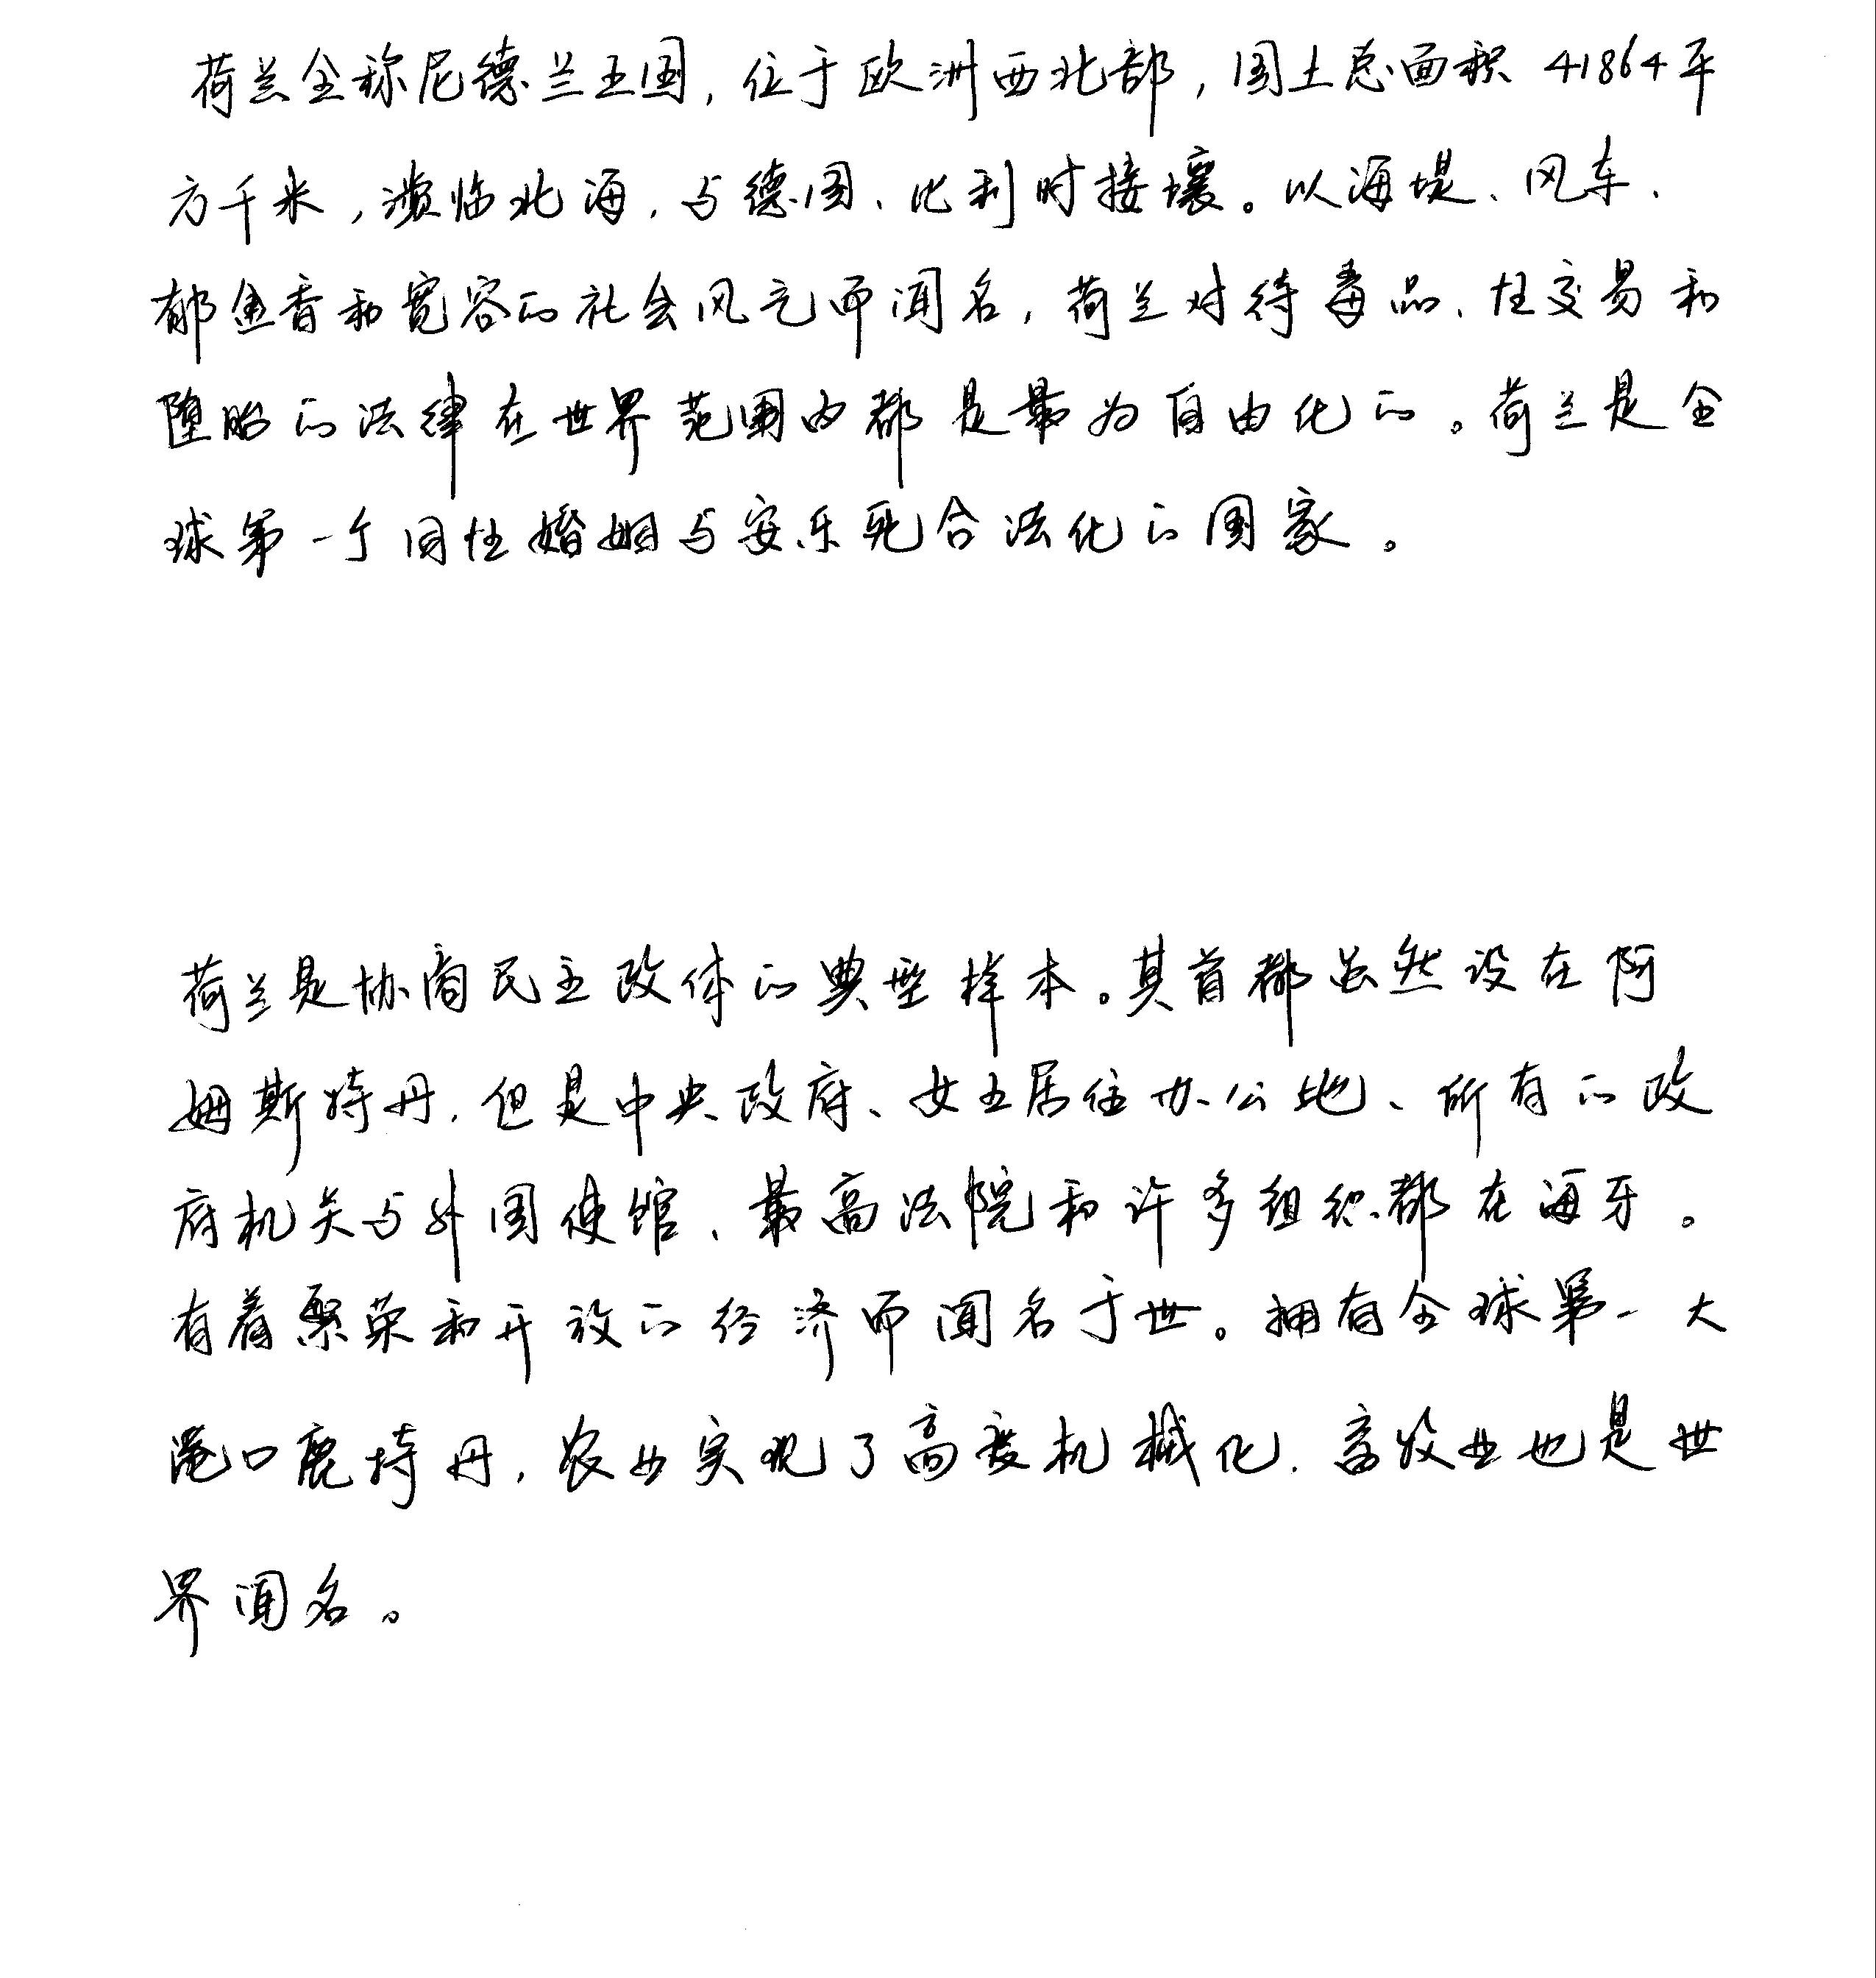 荷兰全称尼德兰王国，位于欧洲西北部，国土总面积41864平
方千米，濒临北海，与德国、比利时接壤。以海堤、风车、
郁金香和宽容的社会风气而闻名，荷兰对待毒品、性交易和
堕胎的法律在世界范围内都是最为自由化的。荷兰是全
球第一个同性婚姻与安乐死合法化的国家。
荷兰是协商民主政体的典型样本。其首都虽然设在阿
姆斯特丹，但是中央政府、女王居住办公地、所有的政
府机关与外国使馆、最高法院和许多组织都在海牙。
有着繁荣和开放的经济而闻名于世。拥有全球第一大
港口鹿特丹，农业实现了高度机械化，畜牧业也是世
界闻名。